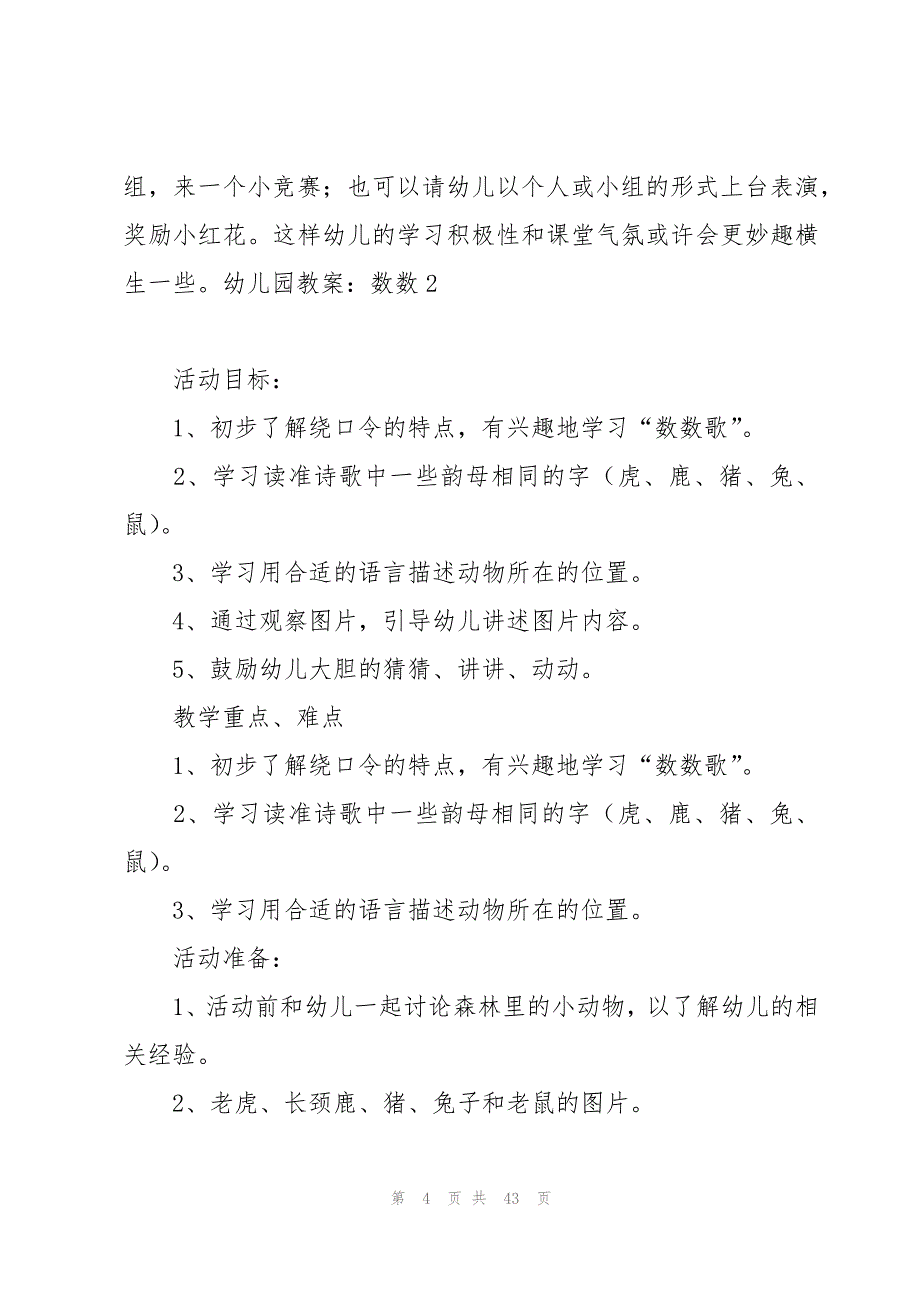 组，来一个小竞赛；也可以请幼儿以个人或小组的形式上台表演，
奖励小红花。这样幼儿的学习积极性和课堂气氛或许会更妙趣横
生一些。幼儿园教案：数数 2
活动目标：
1、初步了解绕口令的特点，有兴趣地学习“数数歌”。
2、学习读准诗歌中一些韵母相同的字（虎、鹿、猪、兔、
鼠）。
3、学习用合适的语言描述动物所在的位置。
4、通过观察图片，引导幼儿讲述图片内容。
5、鼓励幼儿大胆的猜猜、讲讲、动动。
教学重点、难点
1、初步了解绕口令的特点，有兴趣地学习“数数歌”。
2、学习读准诗歌中一些韵母相同的字（虎、鹿、猪、兔、
鼠）。
3、学习用合适的语言描述动物所在的位置。
活动准备：
1、活动前和幼儿一起讨论森林里的小动物，以了解幼儿的相
关经验。
2、老虎、长颈鹿、猪、兔子和老鼠的图片。
第 4 页 共 43 页